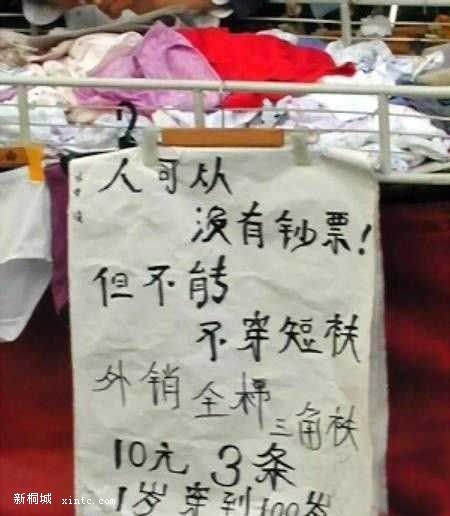 人可从
没有钞票!
但不能
不穿短衭
外销全棉三角衭
10元 3条
1岁穿到100岁
新桐城 xintc.com